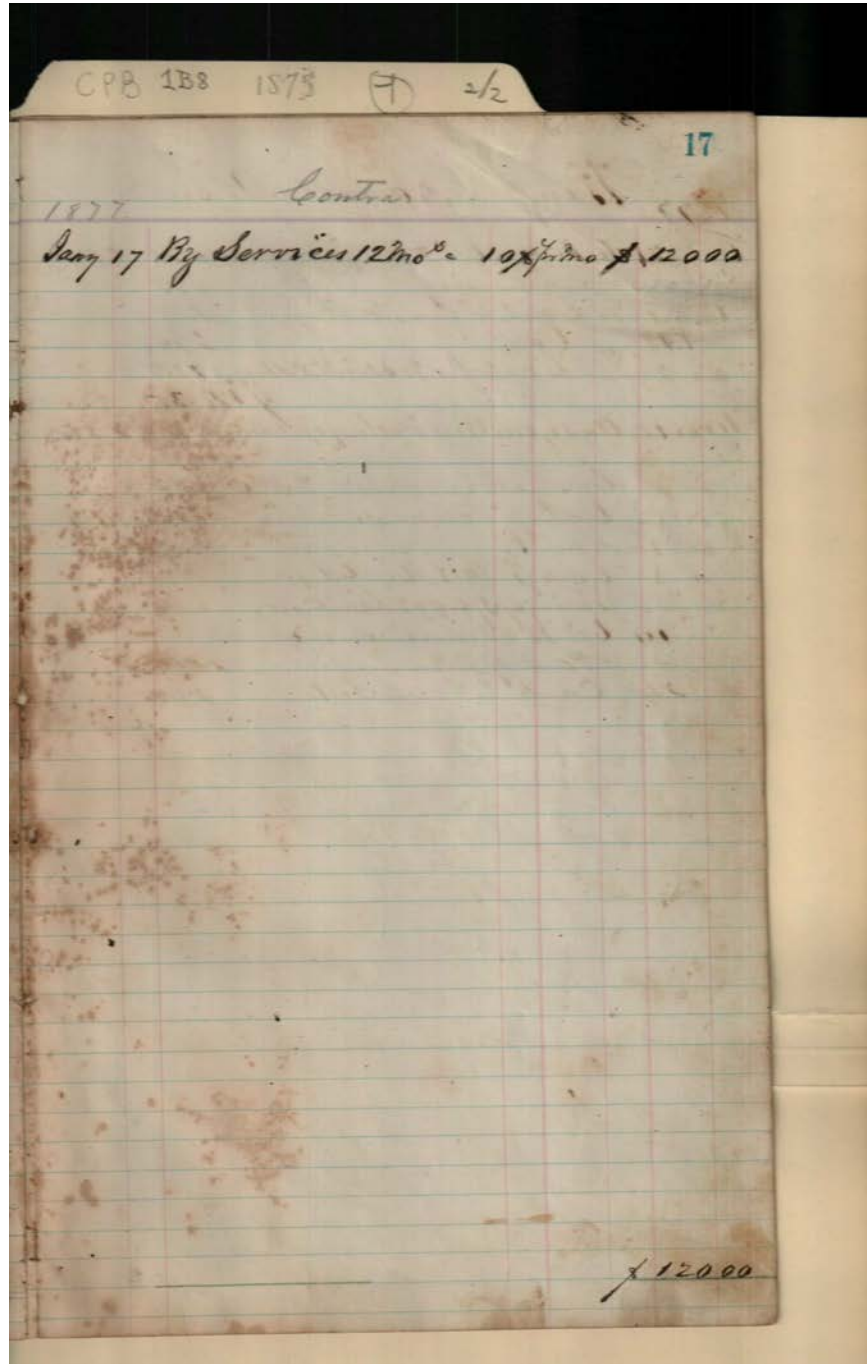 CPB 1B8 1875 7 2/2
17
Contra
1877
Jany 17 By Services 12 mos 10$ pr mo $ 120 00
$ 120 00